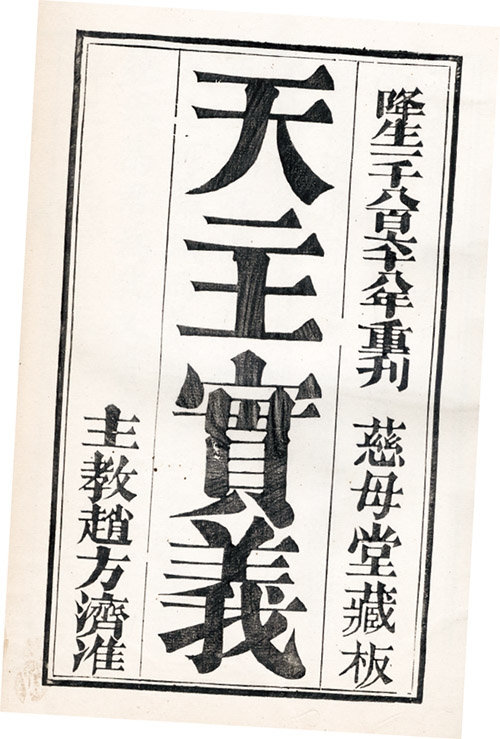 降生一千八百六十八年重刊　慈母堂藏板
天主實義
主教趙方濟准